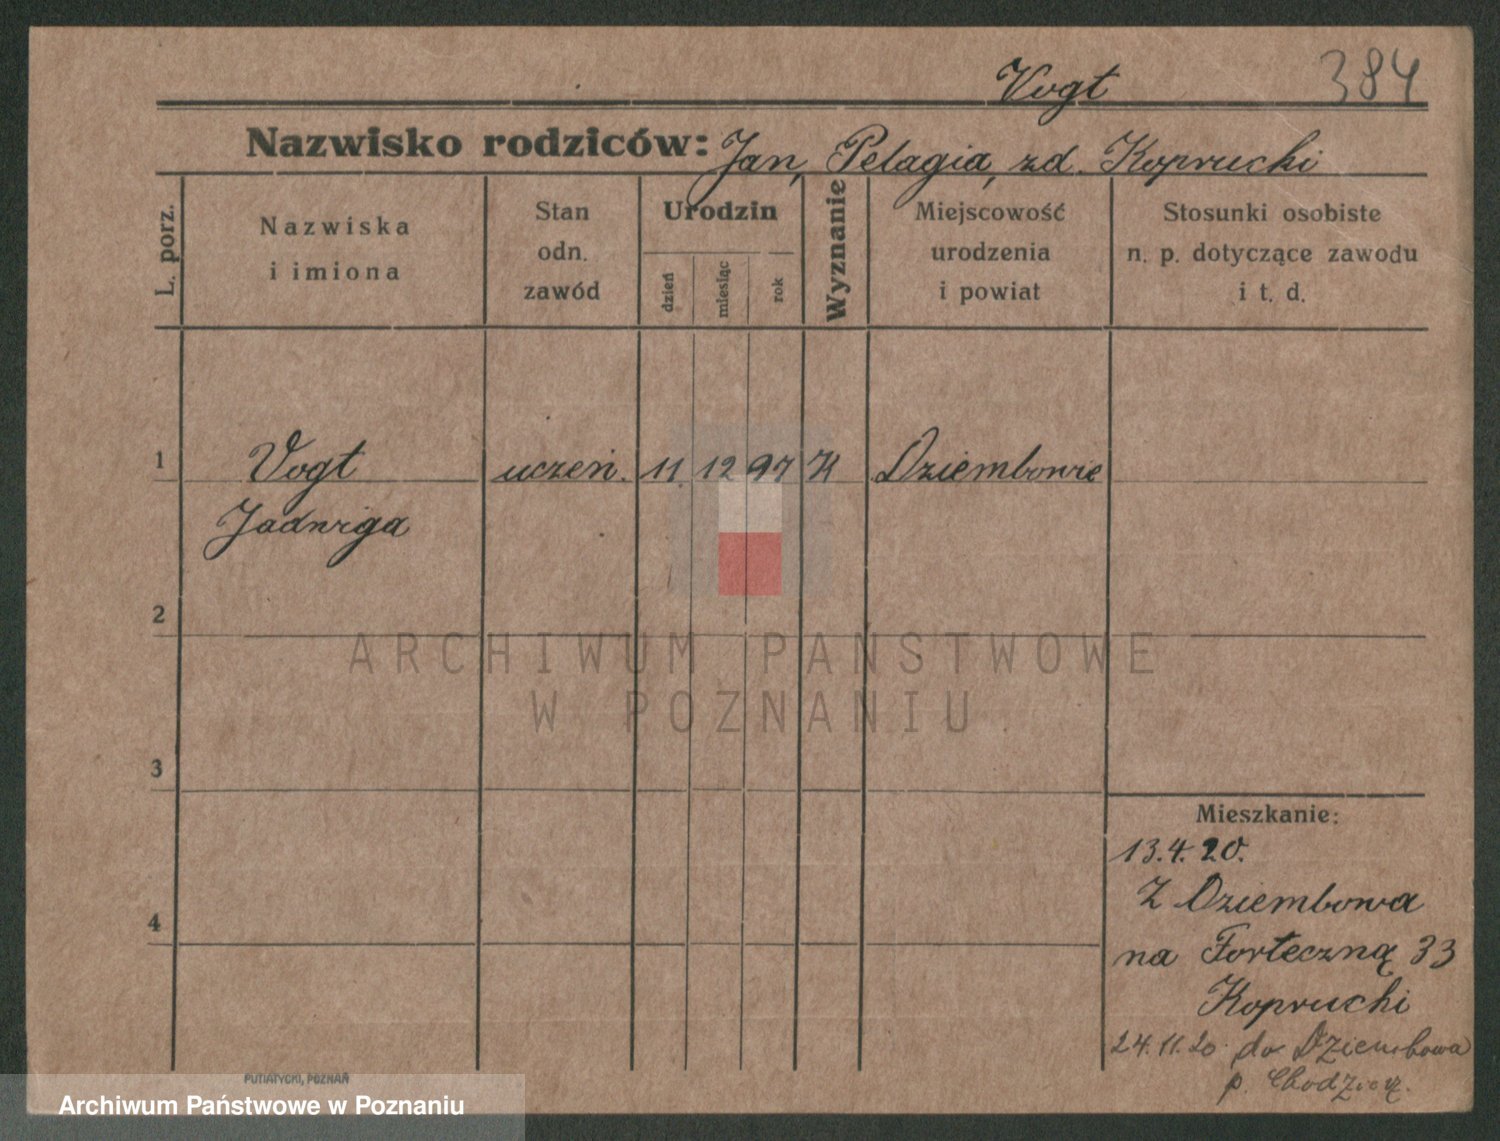 Vogt 384
Nazwisko rodziców: Jan, Pelagia, zd. Kopruchi
L. porz.
Nazwiska
i imiona
Stan
odn.
zawód
Urodzin
dzień
miesiąc
rok
Wyznanie
Miejscowość
urodzenia
i powiat
Stosunki osobiste
n. p. dotyczące zawodu
i t. d.
1 Vogt uczeń. 11 12 97 K Dziembowie
Jadwiga
2
ARCHIWUM PAŃSTWOWE
W POZNANIU
3
Mieszkanie:
13.4.20.
Z Dziembowa
4
na Forteczną 33
Kopruchi
24.11.20 do Dziembowa
p. Chodzież.
PUTIATYCKI, POZNAŃ
Archiwum Państwowe w Poznaniu